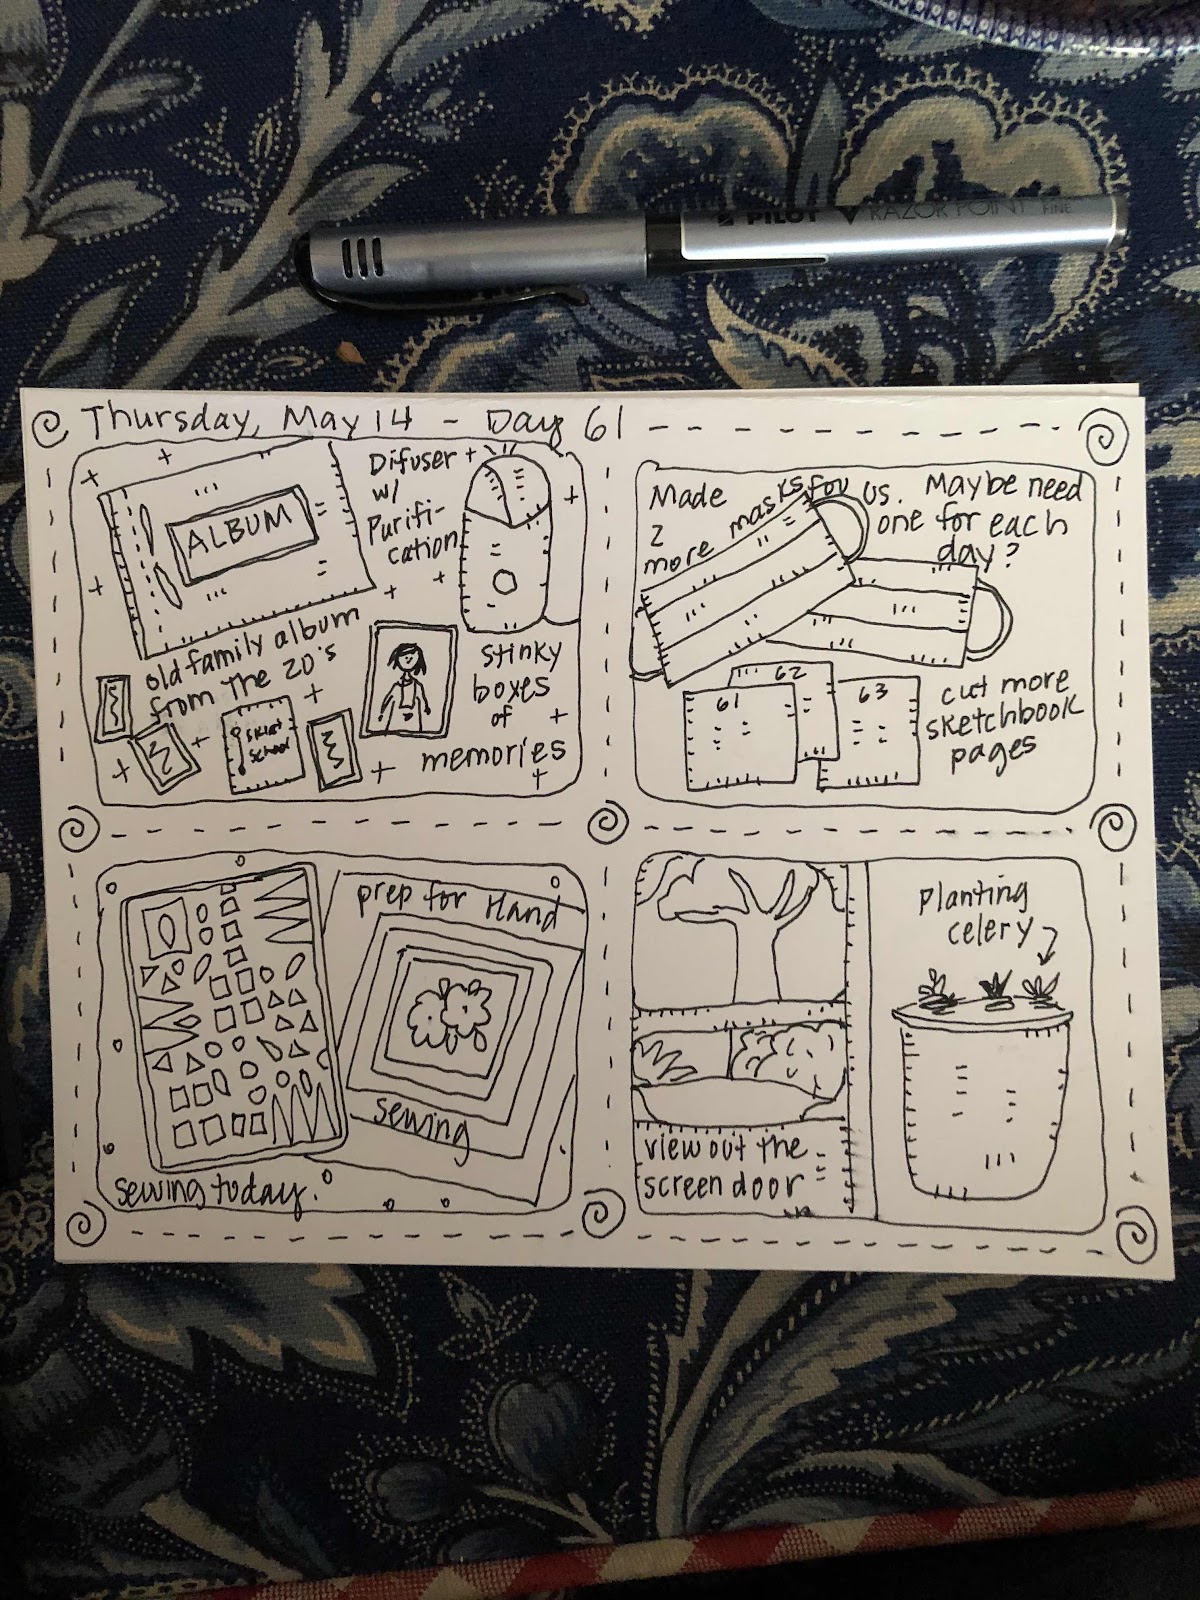 PILOT V RAZOR POINT FINE
Thursday, May 14 - Day 61
ALBUM
Difuser
w/
Purifi-
cation
old family album
from the 20's
stinky
boxes
of
memories
School
Made
2
more masks for us. Maybe need
one for each
day?
61
62
63
cut more
sketchbook
pages
prep for Hand
sewing
sewing today.
view out the
screen door
Planting
celery